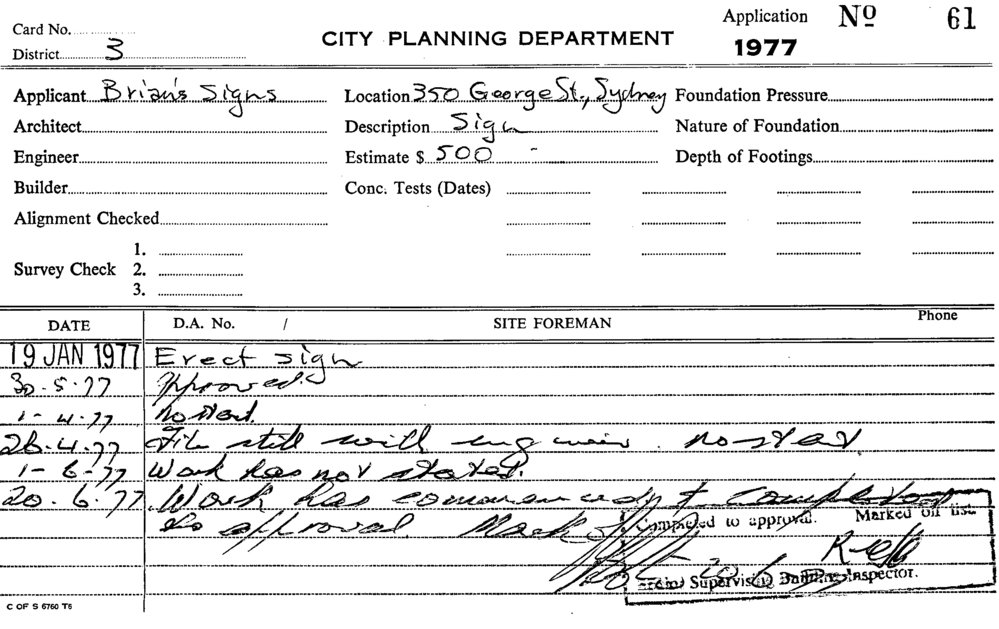 Card No.
CITY PLANNING DEPARTMENT
Application No 61
1977
District 3
Applicant Brian's Signs
Location 350 George St., Sydney
Foundation Pressure
Architect
Description Sign
Nature of Foundation
Engineer
Estimate $ 500 -
Depth of Footings
Builder
Conc. Tests (Dates)
Alignment Checked
Survey Check
1.
2.
3.
DATE D.A. No. / SITE FOREMAN Phone
19 JAN 1977 Erect sign
30.5.77 Approved.
1-4.77 No start.
26.4.77 File still with engineer. no start
1-6-77 Work has not started.
20.6.77 Work has commenced & completed
to approval. Mark off
Completed to approval. Marked off list
20.6.77
Supervising Building Inspector.
C OF S 6760 T6